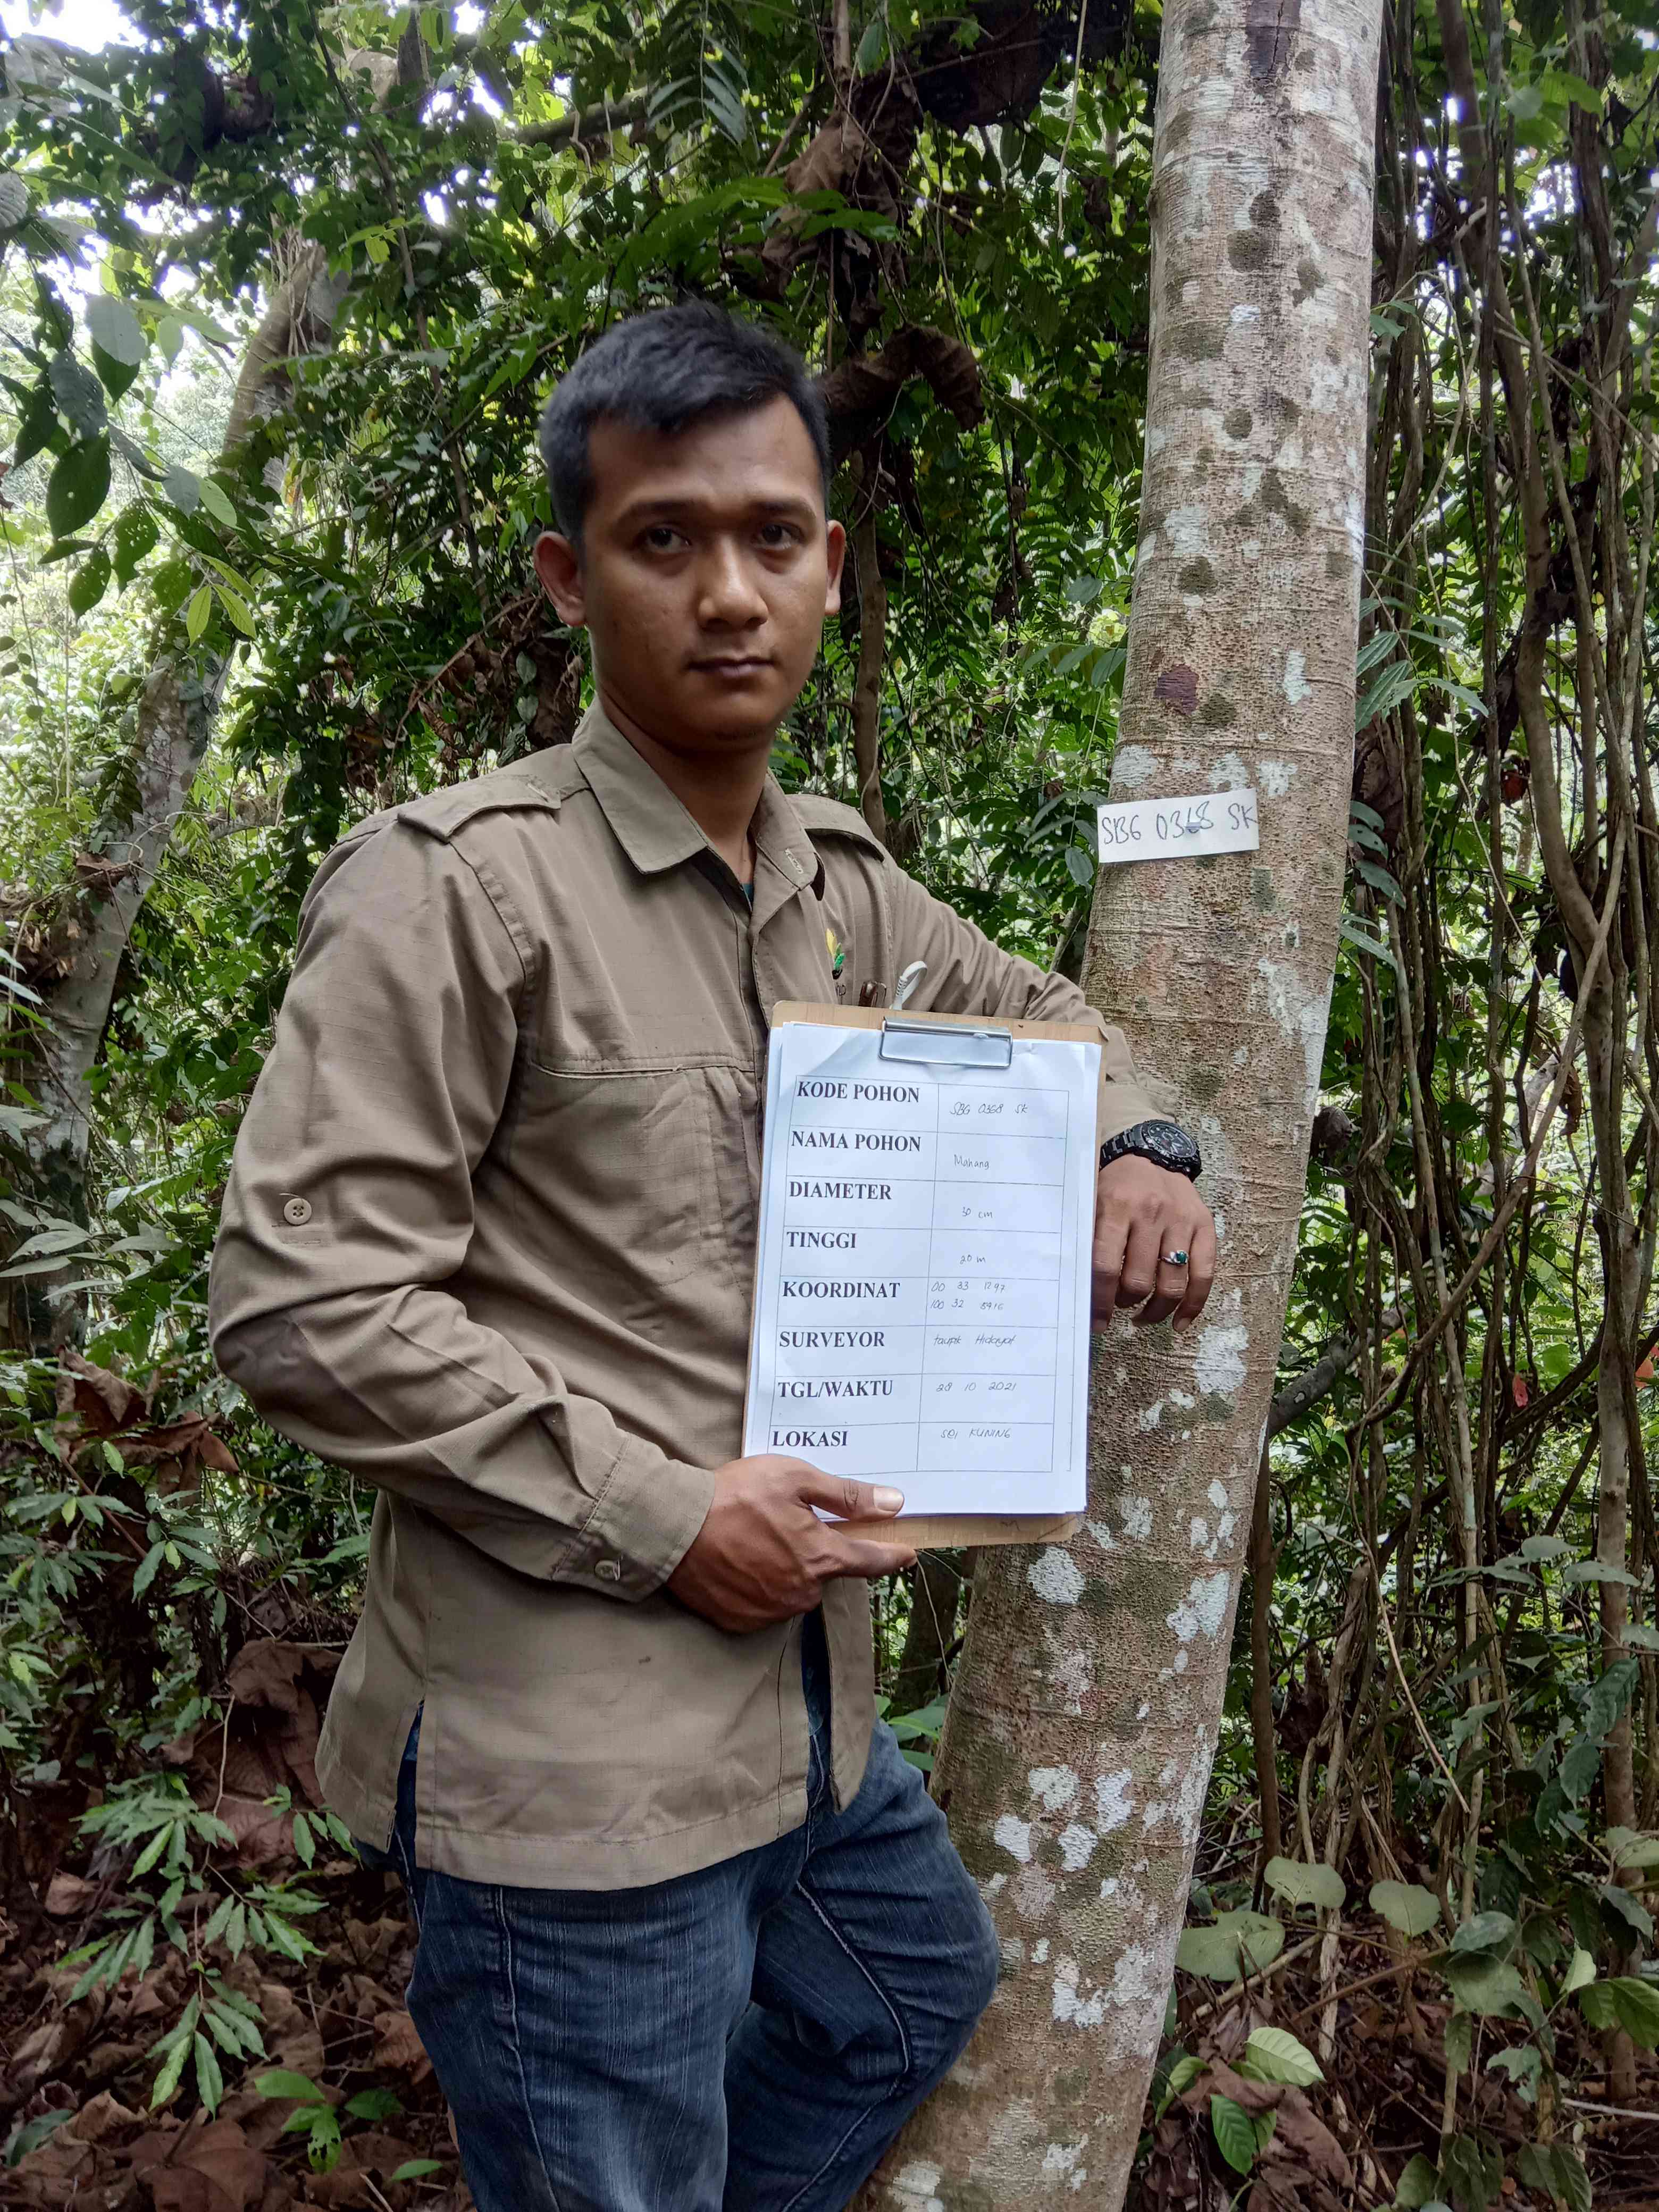 SBG 0368 SK
KODE POHON SBG 0368 SK
NAMA POHON Mahang
DIAMETER 30 cm
TINGGI 20 m
KOORDINAT 00 33 1297
100 32
SURVEYOR taufik Hidayat
TGL/WAKTU 28 10 2021
LOKASI KUNING